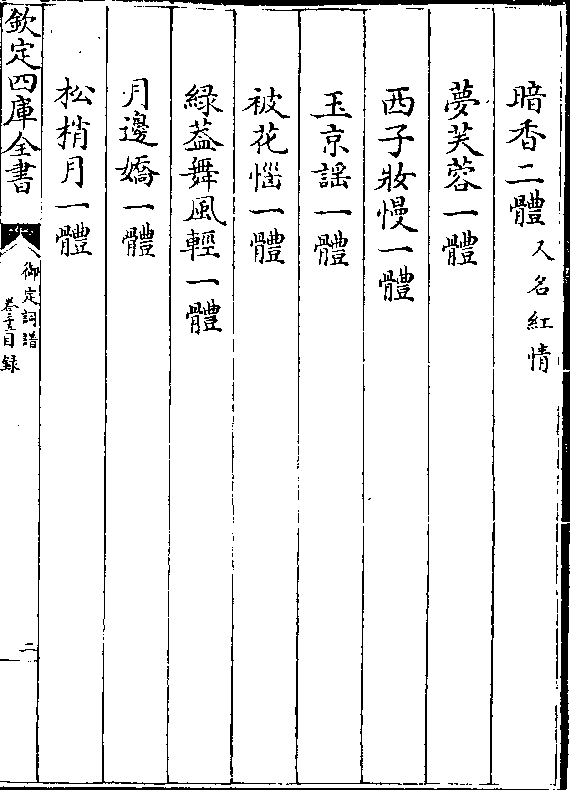 暗香二體又名紅情
夢芙蓉一體
西子妝慢一體
玉京謡一體
被花惱一體
緑葢舞風輕一體
月邊嬌一體
松梢月一體
欽定四庫全書
御定詞譜
卷二十五目録
二